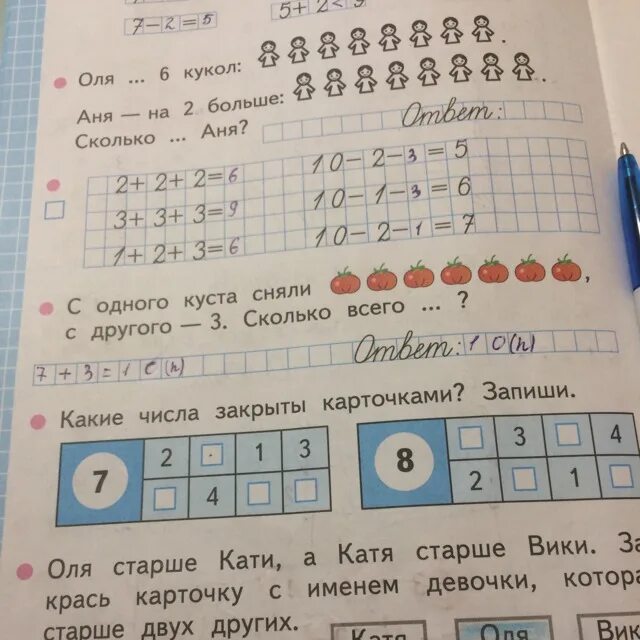 7-2=5
5+2<9
Оля ... 6 кукол:
Аня — на 2 больше:
Сколько ... Аня?
Ответ:
2+2+2=6
10-2-3=5
3+3+3=9
10-1-3=6
1+2+3=6
10-2-1=7
С одного куста сняли
с другого — 3. Сколько всего ... ?
7+3=10(п)
Ответ: 10(п)
Какие числа закрыты карточками? Запиши.
7 2 1 3
4
8 3 4
2 1
Оля старше Кати, а Катя старше Вики. За
крась карточку с именем девочки, котора
старше двух других.
Катя Оля Вик